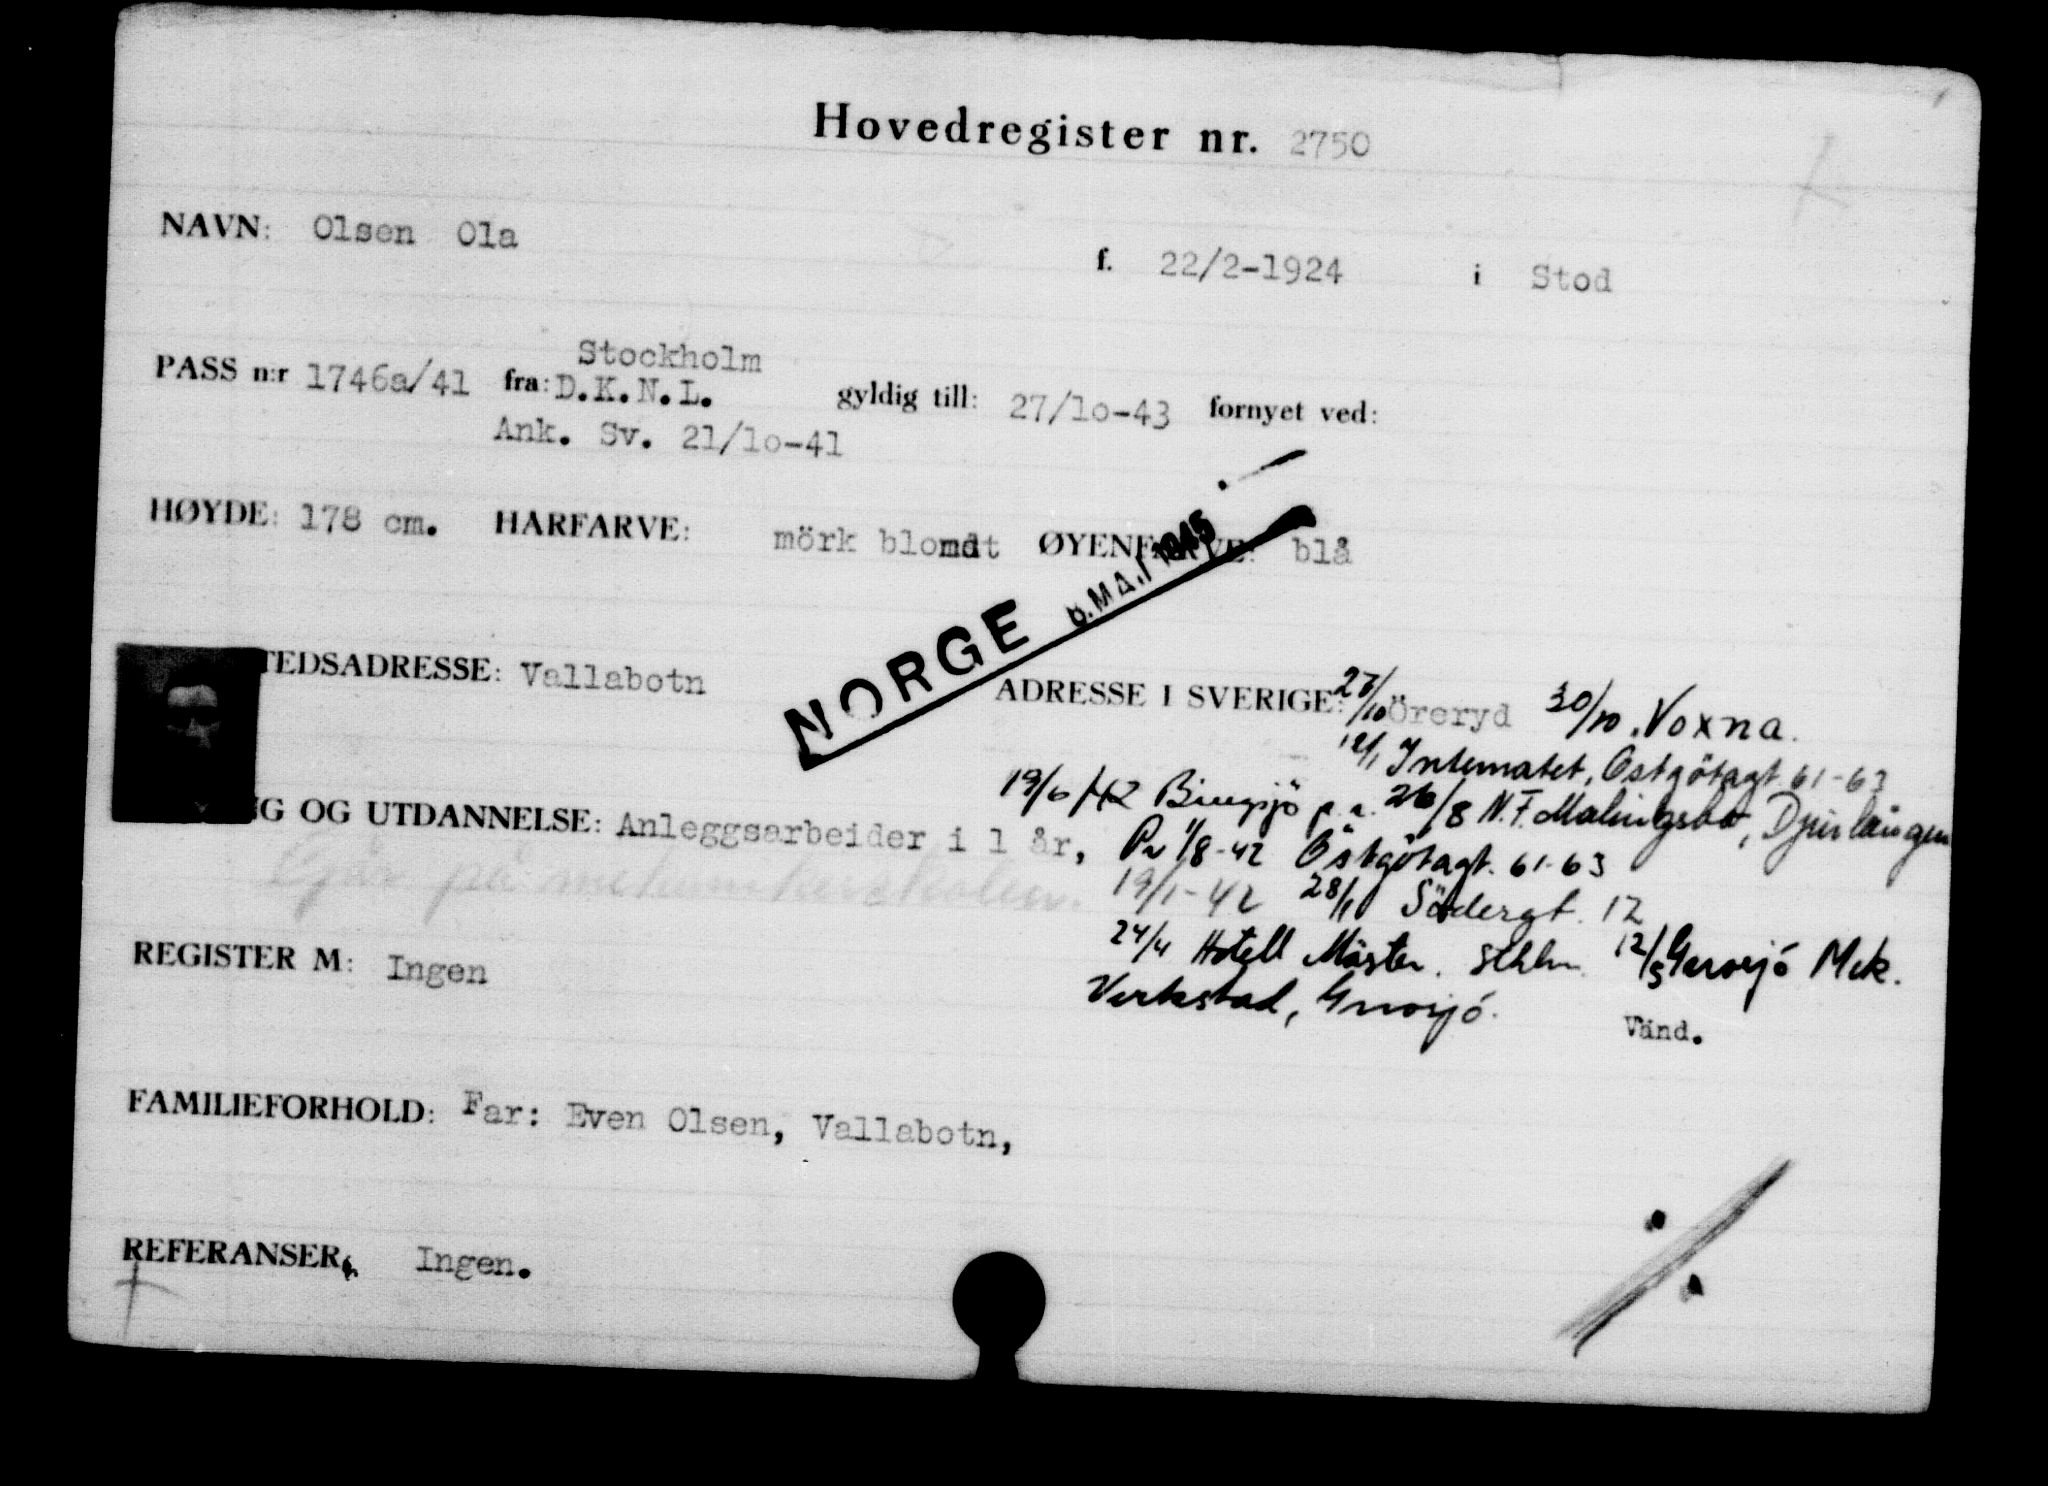 Hovedregister nr. 2750
NAVN: Olsen Ola
f. 22/2-1924 i Stod
Stockholm
PASS n:r 1746a/41 fra: D.K.N.L. gyldig till: 27/1o-43 fornyet ved:
Ank. Sv. 21/1o-41
HØYDE: 178 cm. HÅRFARVE: mörk blondt ØYENFARVE: blå
NORGE 8.MAJ 1945
TEDSADRESSE: Vallabotn
ADRESSE I SVERIGE: 27/10 Öreryd 30/10. Voxna.
12/1 Internatet, Östgötagt 61-63
19/6/42 Bingsjö p.a. 26/8 N.F. Malingsbo, Djurlången
NG OG UTDANNELSE: Anleggsarbeider i 1 år,
Går på mekanikerskolen.
Pr 1/8-42 Östgötagt. 61-63
19/1-42 28/1 Södergt. 12
24/4 Hotell Mäster. Sthlm 12/5 Gnosjö Mek.
Verkstad, Gnosjö.
Vänd.
REGISTER M: Ingen
FAMILIEFORHOLD: Far: Even Olsen, Vallabotn,
REFERANSER: Ingen.